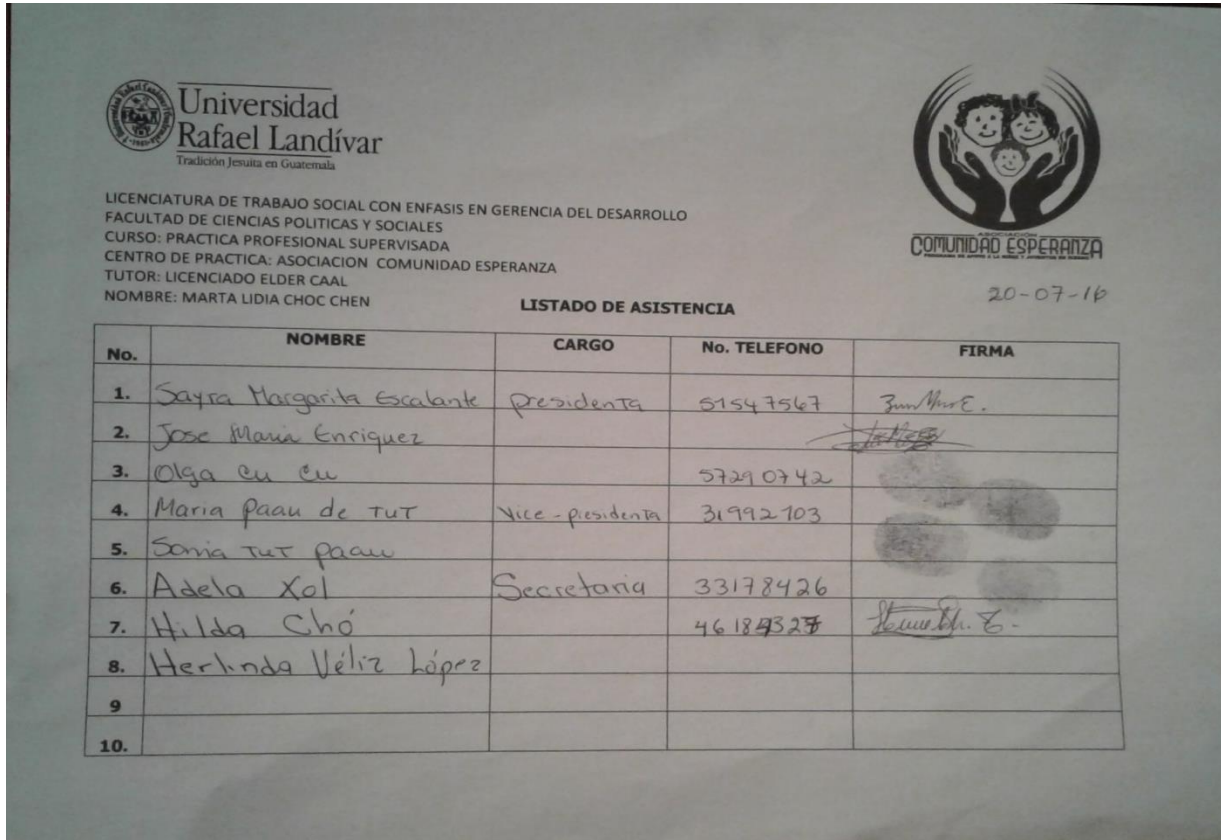 Universidad
Rafael Landívar
Tradición Jesuita en Guatemala
LICENCIATURA DE TRABAJO SOCIAL CON ENFASIS EN GERENCIA DEL DESARROLLO
FACULTAD DE CIENCIAS POLITICAS Y SOCIALES
CURSO: PRACTICA PROFESIONAL SUPERVISADA
CENTRO DE PRACTICA: ASOCIACION COMUNIDAD ESPERANZA
TUTOR: LICENCIADO ELDER CAAL
NOMBRE: MARTA LIDIA CHOC CHEN
ASOCIACIÓN
COMUNIDAD ESPERANZA
20-07-16
LISTADO DE ASISTENCIA
No. NOMBRE CARGO No. TELEFONO FIRMA
1. Sayra Margarita Escalante presidenta 51547567
2. Jose Maria Enriquez
3. Olga Cu Cu 57290742
4. Maria Paau de TUT Vice-presidenta 31992103
5. Sonia TUT paau
6. Adela Xol Secretaria 33178426
7. Hilda Chó
8. Herlinda Véliz López
9
10.